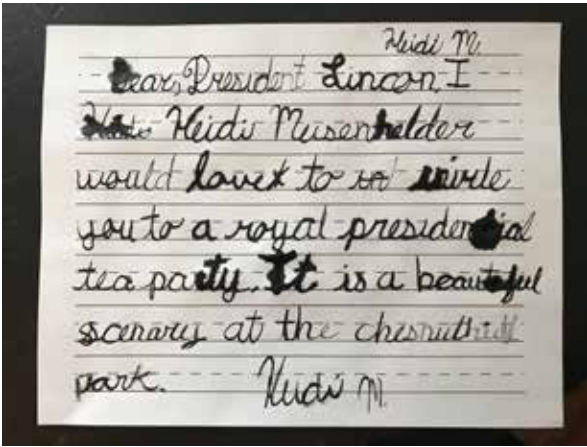 Heidi M.
Dear, President Lincon, I
Heidi Meisenhelder
would love to invite
you to a royal presidential
tea party. It is a beautiful
scenary at the chesnuthill
park. Heidi M.